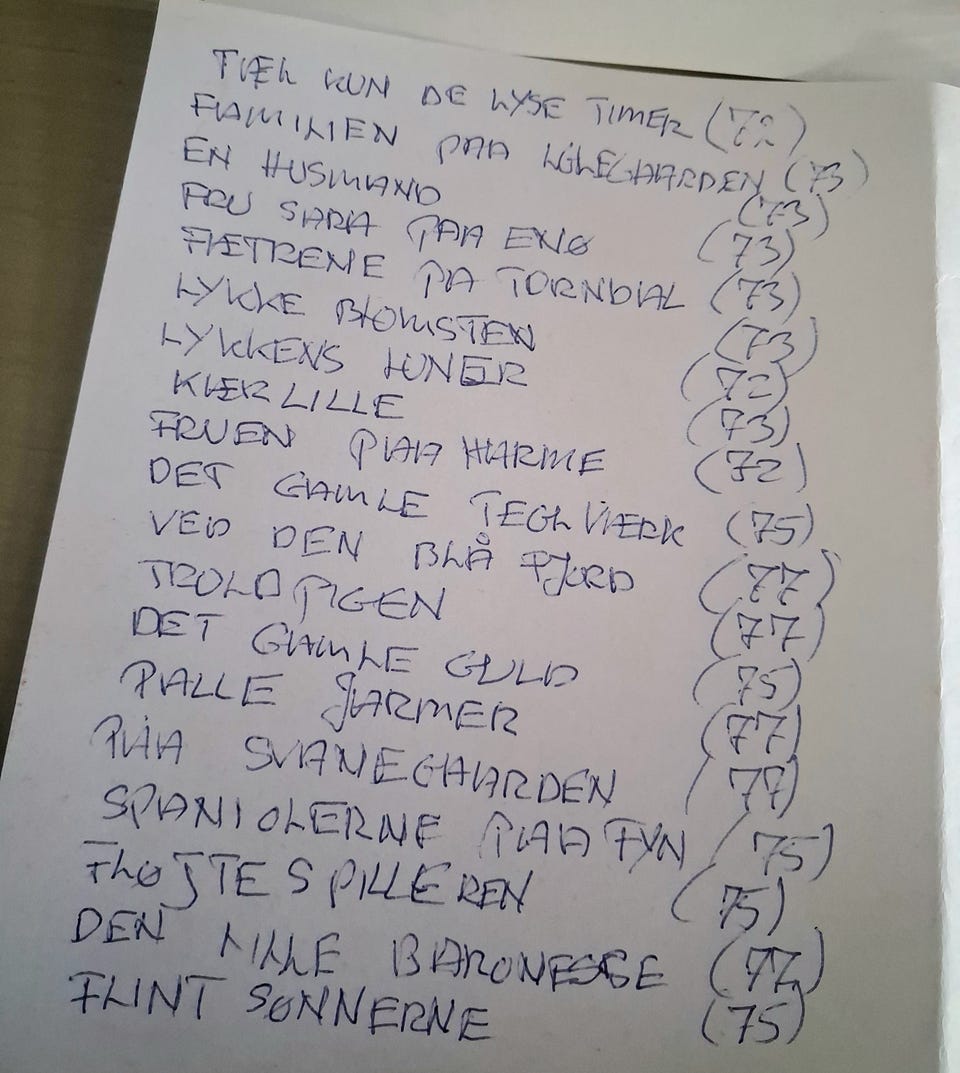 TÆL KUN DE LYSE TIMER (72)
FAMILIEN PAA LILLEGAARDEN (73)
EN HUSMAND (73)
FRU SARA PAA ENØ (73)
FÆTRENE PA TORNDAL (73)
LYKKE BLOMSTEN (73)
LYKKENS LUNER (72)
KÆR LILLE (73)
FRUEN PAA HARME (72)
DET GAMLE TEGLVÆRK (75)
VED DEN BLÅ FJORD (77)
TROLDPIGEN (77)
DET GAMLE GULD (75)
PALLE JARMER (77)
PAA SVANEGAARDEN (77)
SPANIOLERNE PAA FYN (75)
FLØJTESPILLEREN (75)
DEN LILLE BARONESSE (77)
FLINT SØNNERNE (75)